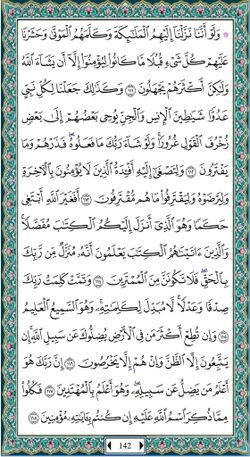 ۞ وَلَوْ أَنَّنَا نَزَّلْنَا إِلَيْهِمُ الْمَلَٰئِكَةَ وَكَلَّمَهُمُ الْمَوْتَىٰ وَحَشَرْنَا
عَلَيْهِمْ كُلَّ شَىْءٍ قُبُلًا مَّا كَانُوا لِيُؤْمِنُوا إِلَّا أَن يَشَاءَ اللَّهُ
وَلَٰكِنَّ أَكْثَرَهُمْ يَجْهَلُونَ ١١١ وَكَذَٰلِكَ جَعَلْنَا لِكُلِّ نَبِىٍّ
عَدُوًّا شَيَٰطِينَ الْإِنسِ وَالْجِنِّ يُوحِى بَعْضُهُمْ إِلَىٰ بَعْضٍ
زُخْرُفَ الْقَوْلِ غُرُورًا ۚ وَلَوْ شَاءَ رَبُّكَ مَا فَعَلُوهُ ۖ فَذَرْهُمْ وَمَا
يَفْتَرُونَ ١١٢ وَلِتَصْغَىٰ إِلَيْهِ أَفْـِٔدَةُ الَّذِينَ لَا يُؤْمِنُونَ بِالْءَاخِرَةِ
وَلِيَرْضَوْهُ وَلِيَقْتَرِفُوا مَا هُم مُّقْتَرِفُونَ ١١٣ أَفَغَيْرَ اللَّهِ أَبْتَغِى
حَكَمًا وَهُوَ الَّذِى أَنزَلَ إِلَيْكُمُ الْكِتَٰبَ مُفَصَّلًا ۚ
وَالَّذِينَ ءَاتَيْنَٰهُمُ الْكِتَٰبَ يَعْلَمُونَ أَنَّهُ مُنَزَّلٌ مِّن رَّبِّكَ
بِالْحَقِّ ۖ فَلَا تَكُونَنَّ مِنَ الْمُمْتَرِينَ ١١٤ وَتَمَّتْ كَلِمَتُ رَبِّكَ
صِدْقًا وَعَدْلًا ۚ لَّا مُبَدِّلَ لِكَلِمَٰتِهِ ۚ وَهُوَ السَّمِيعُ الْعَلِيمُ
١١٥ وَإِن تُطِعْ أَكْثَرَ مَن فِى الْأَرْضِ يُضِلُّوكَ عَن سَبِيلِ اللَّهِ ۚ إِن
يَتَّبِعُونَ إِلَّا الظَّنَّ وَإِنْ هُمْ إِلَّا يَخْرُصُونَ ١١٦ إِنَّ رَبَّكَ هُوَ
أَعْلَمُ مَن يَضِلُّ عَن سَبِيلِهِ ۖ وَهُوَ أَعْلَمُ بِالْمُهْتَدِينَ ١١٧ فَكُلُوا
مِمَّا ذُكِرَ اسْمُ اللَّهِ عَلَيْهِ إِن كُنتُم بِـَٔايَٰتِهِ مُؤْمِنِينَ ١١٨
142